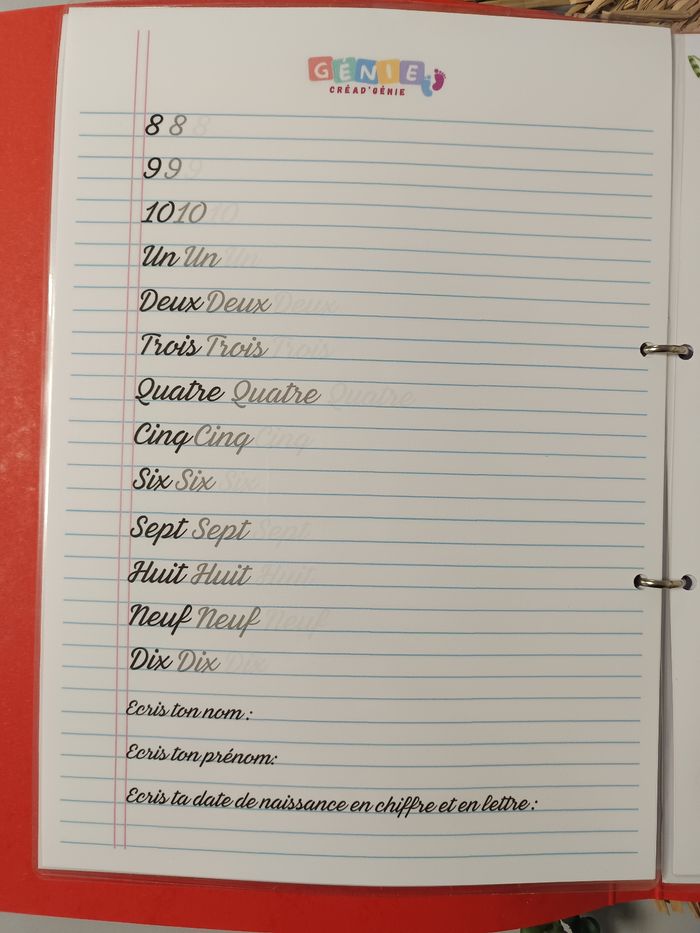 GÉNIE
CRÉAD'GÉNIE
8 8 8
9 9 9
10 10 10
Un Un Un
Deux Deux Deux
Trois Trois Trois
Quatre Quatre Quatre
Cinq Cinq Cinq
Six Six Six
Sept Sept Sept
Huit Huit Huit
Neuf Neuf Neuf
Dix Dix Dix
Ecris ton nom :
Ecris ton prénom:
Ecris ta date de naissance en chiffre et en lettre :